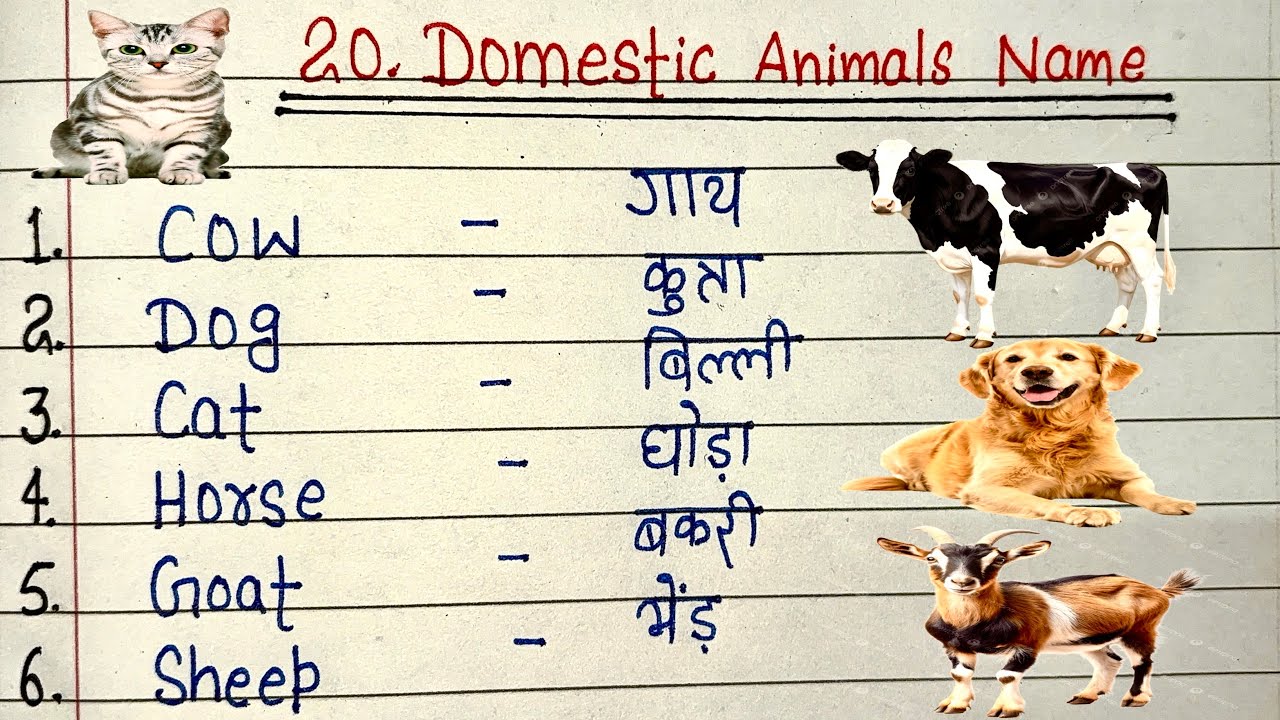 20. Domestic Animals Name
1. Cow - गाय
2. Dog - कुत्ता
3. Cat - बिल्ली
4. Horse - घोड़ा
5. Goat - बकरी
6. Sheep - भेंड़